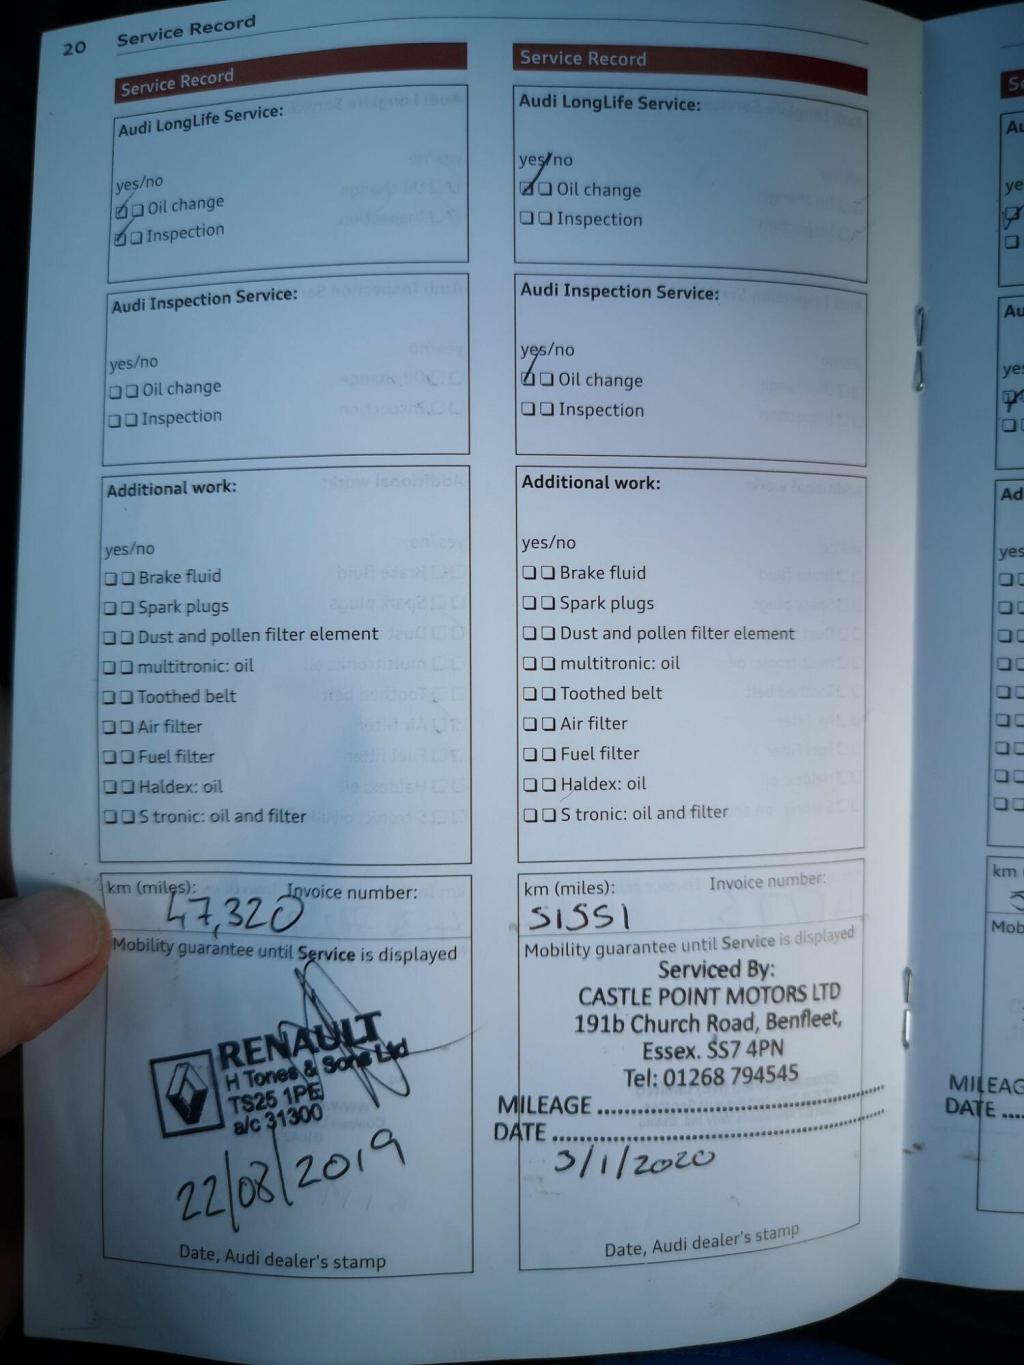 20 Service Record
Service Record
Audi LongLife Service:
yes/no
Oil change
Inspection
Audi Inspection Service:
yes/no
Oil change
Inspection
Additional work:
yes/no
Brake fluid
Spark plugs
Dust and pollen filter element
multitronic: oil
Toothed belt
Air filter
Fuel filter
Haldex: oil
S tronic: oil and filter
km (miles): Invoice number:
47,320
Mobility guarantee until Service is displayed
RENAULT
H Tones & Sons Ltd
TS25 1PE
a/c 31300
22/08/2019
Date, Audi dealer's stamp
Service Record
Audi LongLife Service:
yes/no
Oil change
Inspection
Audi Inspection Service:
yes/no
Oil change
Inspection
Additional work:
yes/no
Brake fluid
Spark plugs
Dust and pollen filter element
multitronic: oil
Toothed belt
Air filter
Fuel filter
Haldex: oil
S tronic: oil and filter
km (miles): Invoice number:
51551
Mobility guarantee until Service is displayed
Serviced By:
CASTLE POINT MOTORS LTD
191b Church Road, Benfleet,
Essex. SS7 4PN
Tel: 01268 794545
MILEAGE
DATE
3/1/2020
Date, Audi dealer's stamp
km
DATE